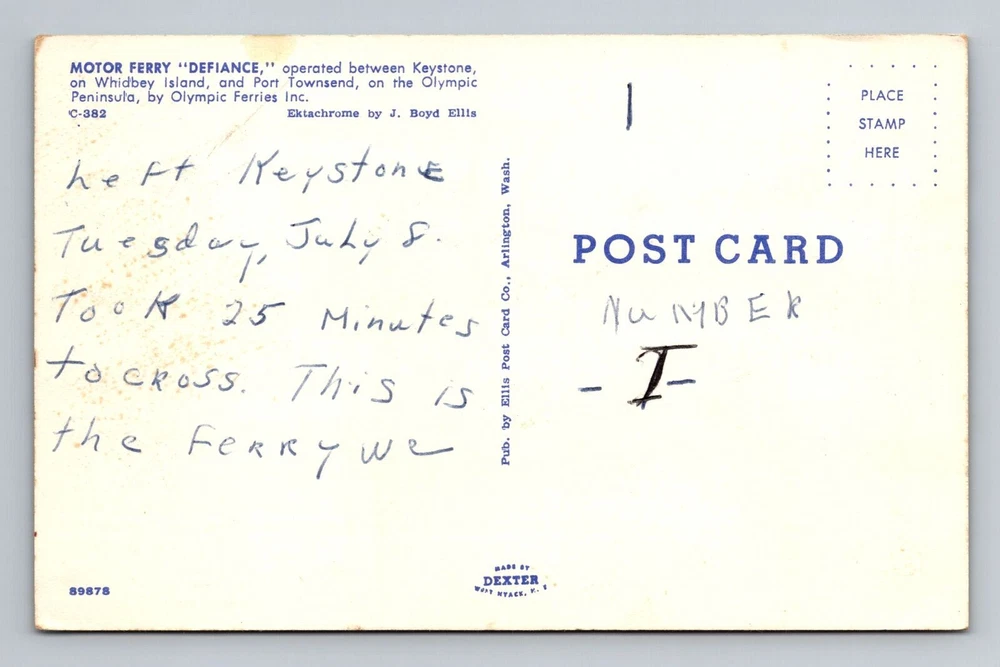 MOTOR FERRY "DEFIANCE," operated between Keystone,
on Whidbey Island, and Port Townsend, on the Olympic
Peninsula, by Olympic Ferries Inc.
C-382 Ektachrome by J. Boyd Ellis
Left Keystone
Tuesday, July 8.
Took 25 Minutes
to cross. This is
the Ferry we
89878
Pub. by Ellis Post Card Co., Arlington, Wash.
MADE BY
DEXTER
WEST NYACK, N. Y.
1
PLACE
STAMP
HERE
POST CARD
NUMBER
- I -